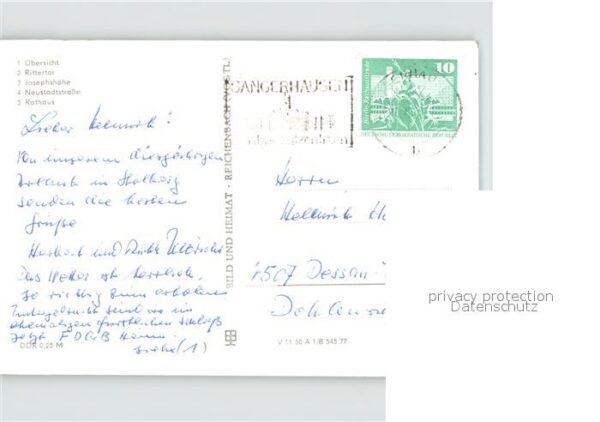 1 Übersicht
2 Rittertor
3 Josephshöhe
4 Neustadtstraße
5 Rathaus
Lieber Hellmuth!
Von unserem diesjährigen
Urlaub in Stolberg
senden die besten
Grüße
Herbert und
Das Wetter ist herrlich,
so richtig zum erholen
sind wir im
ehemaligen fürstlichen Schloß
jetzt FDGB Heim.
siehe (1)
DDR 0,25 M
BILD UND HEIMAT · REICHENBACH (VOGTL)
V 11 50 A 1/B 545 77
SANGERHAUSEN
10
DEUTSCHE DEMOKRATISCHE REPUBLIK
Herrn
4507 Dessau-
privacy protection
Datenschutz